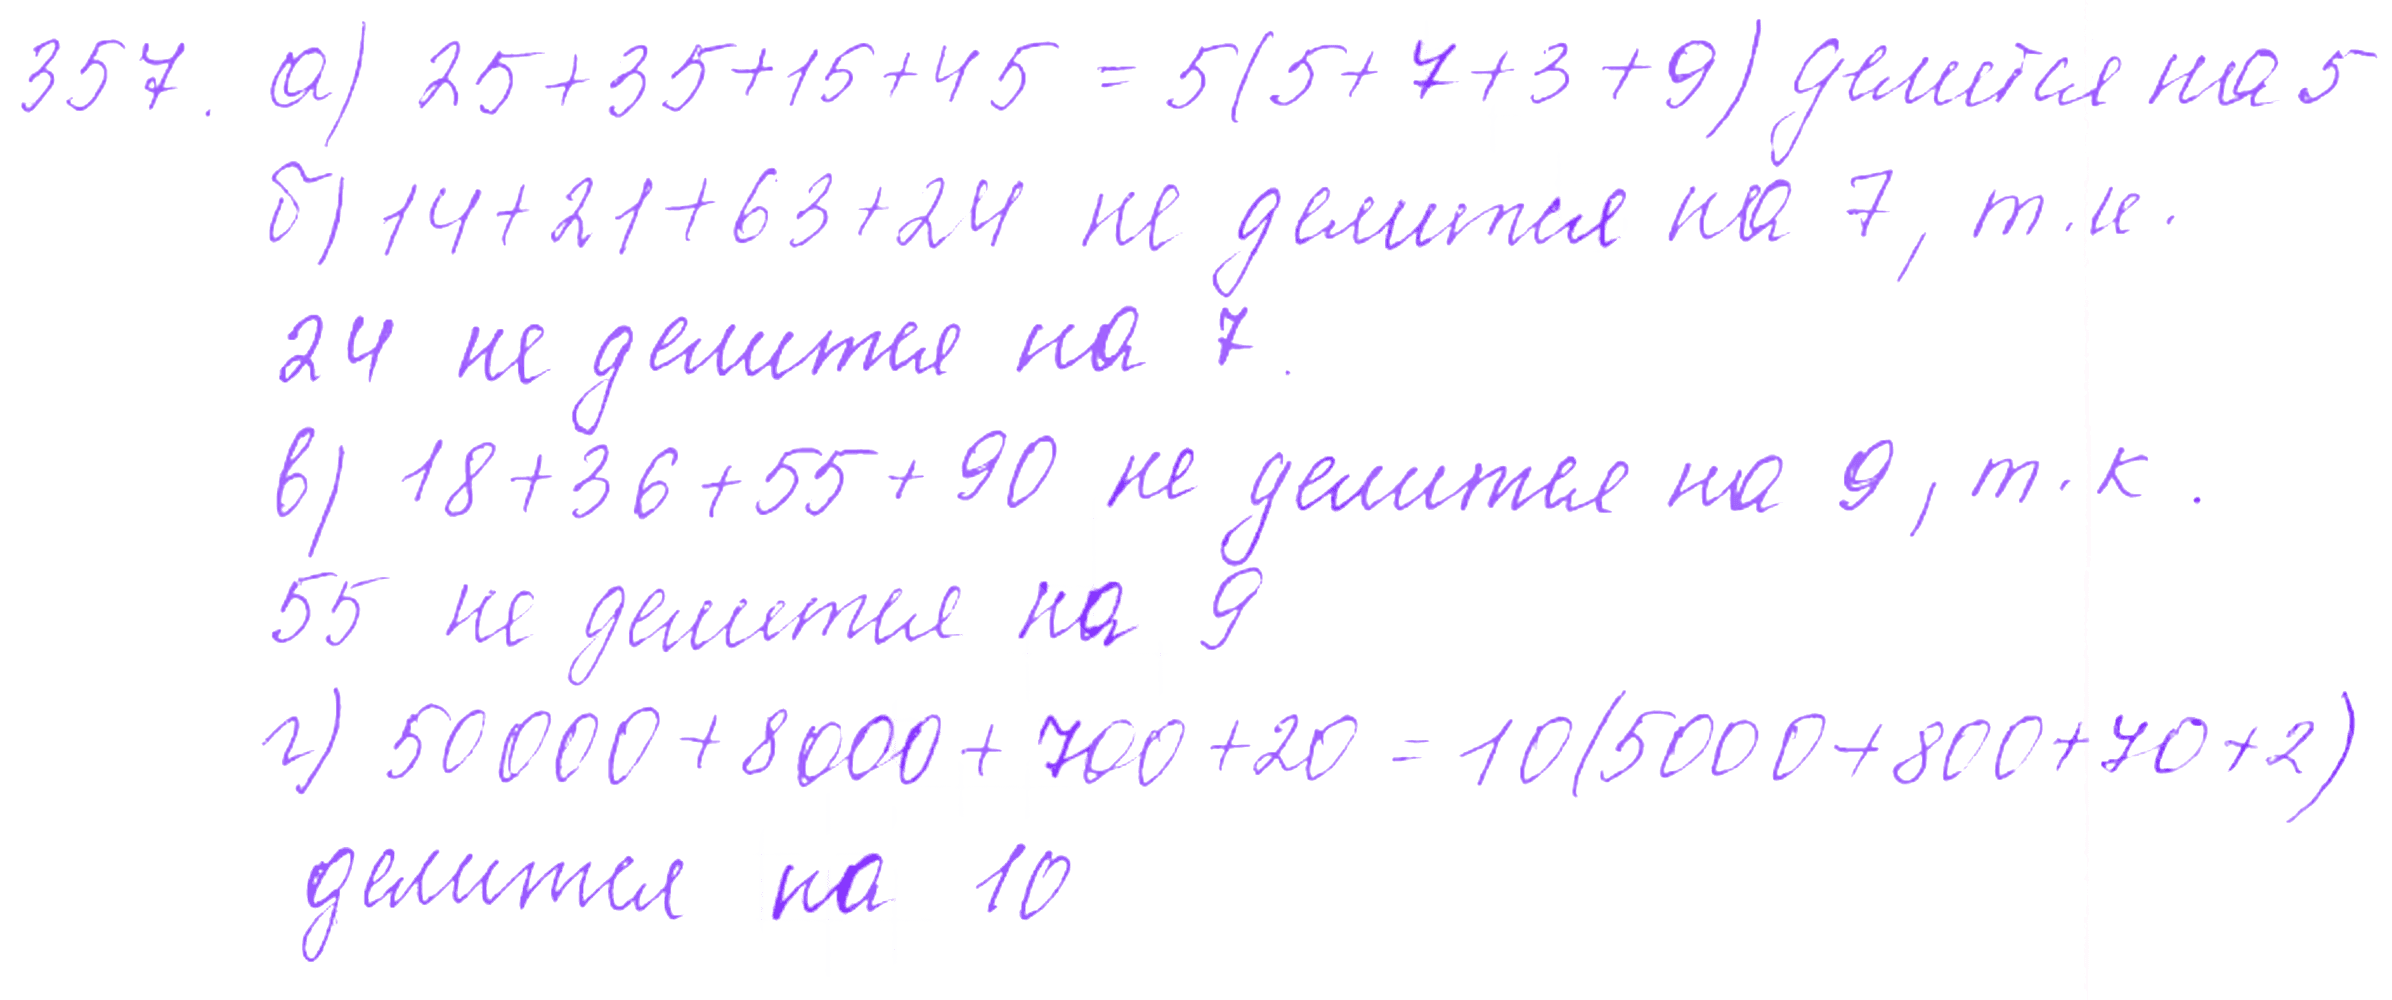 357. а) 25+35+15+45 = 5(5+7+3+9) делится на 5
б) 14+21+63+24 не делится на 7, т.к.
24 не делится на 7.
в) 18+36+55+90 не делится на 9, т.к.
55 не делится на 9
г) 50000+8000+700+20 = 10(5000+800+70+2)
делится на 10